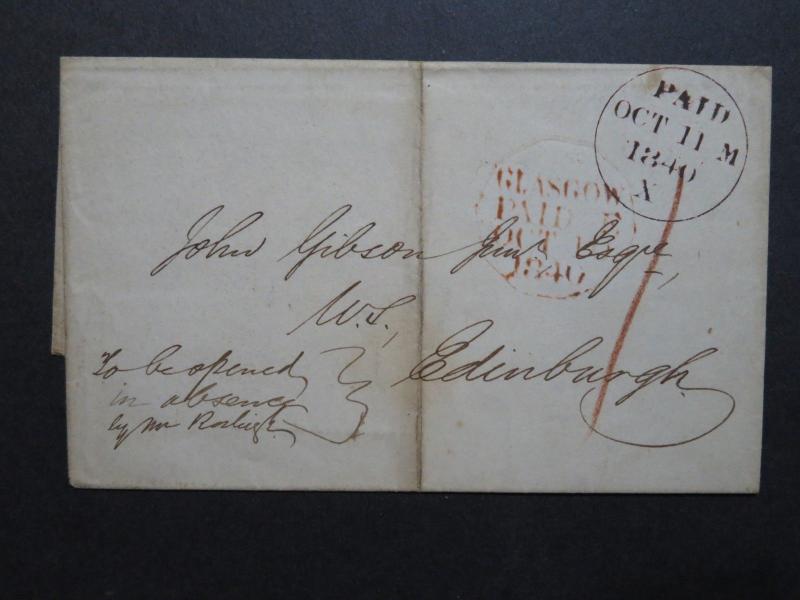 PAID
OCT 11 M
1840
X
GLASGOW
PAID
OCT
1840
John Gibson Junr Esqre,
W.S.,
Edinburgh
To be opened
in absence
by Mr